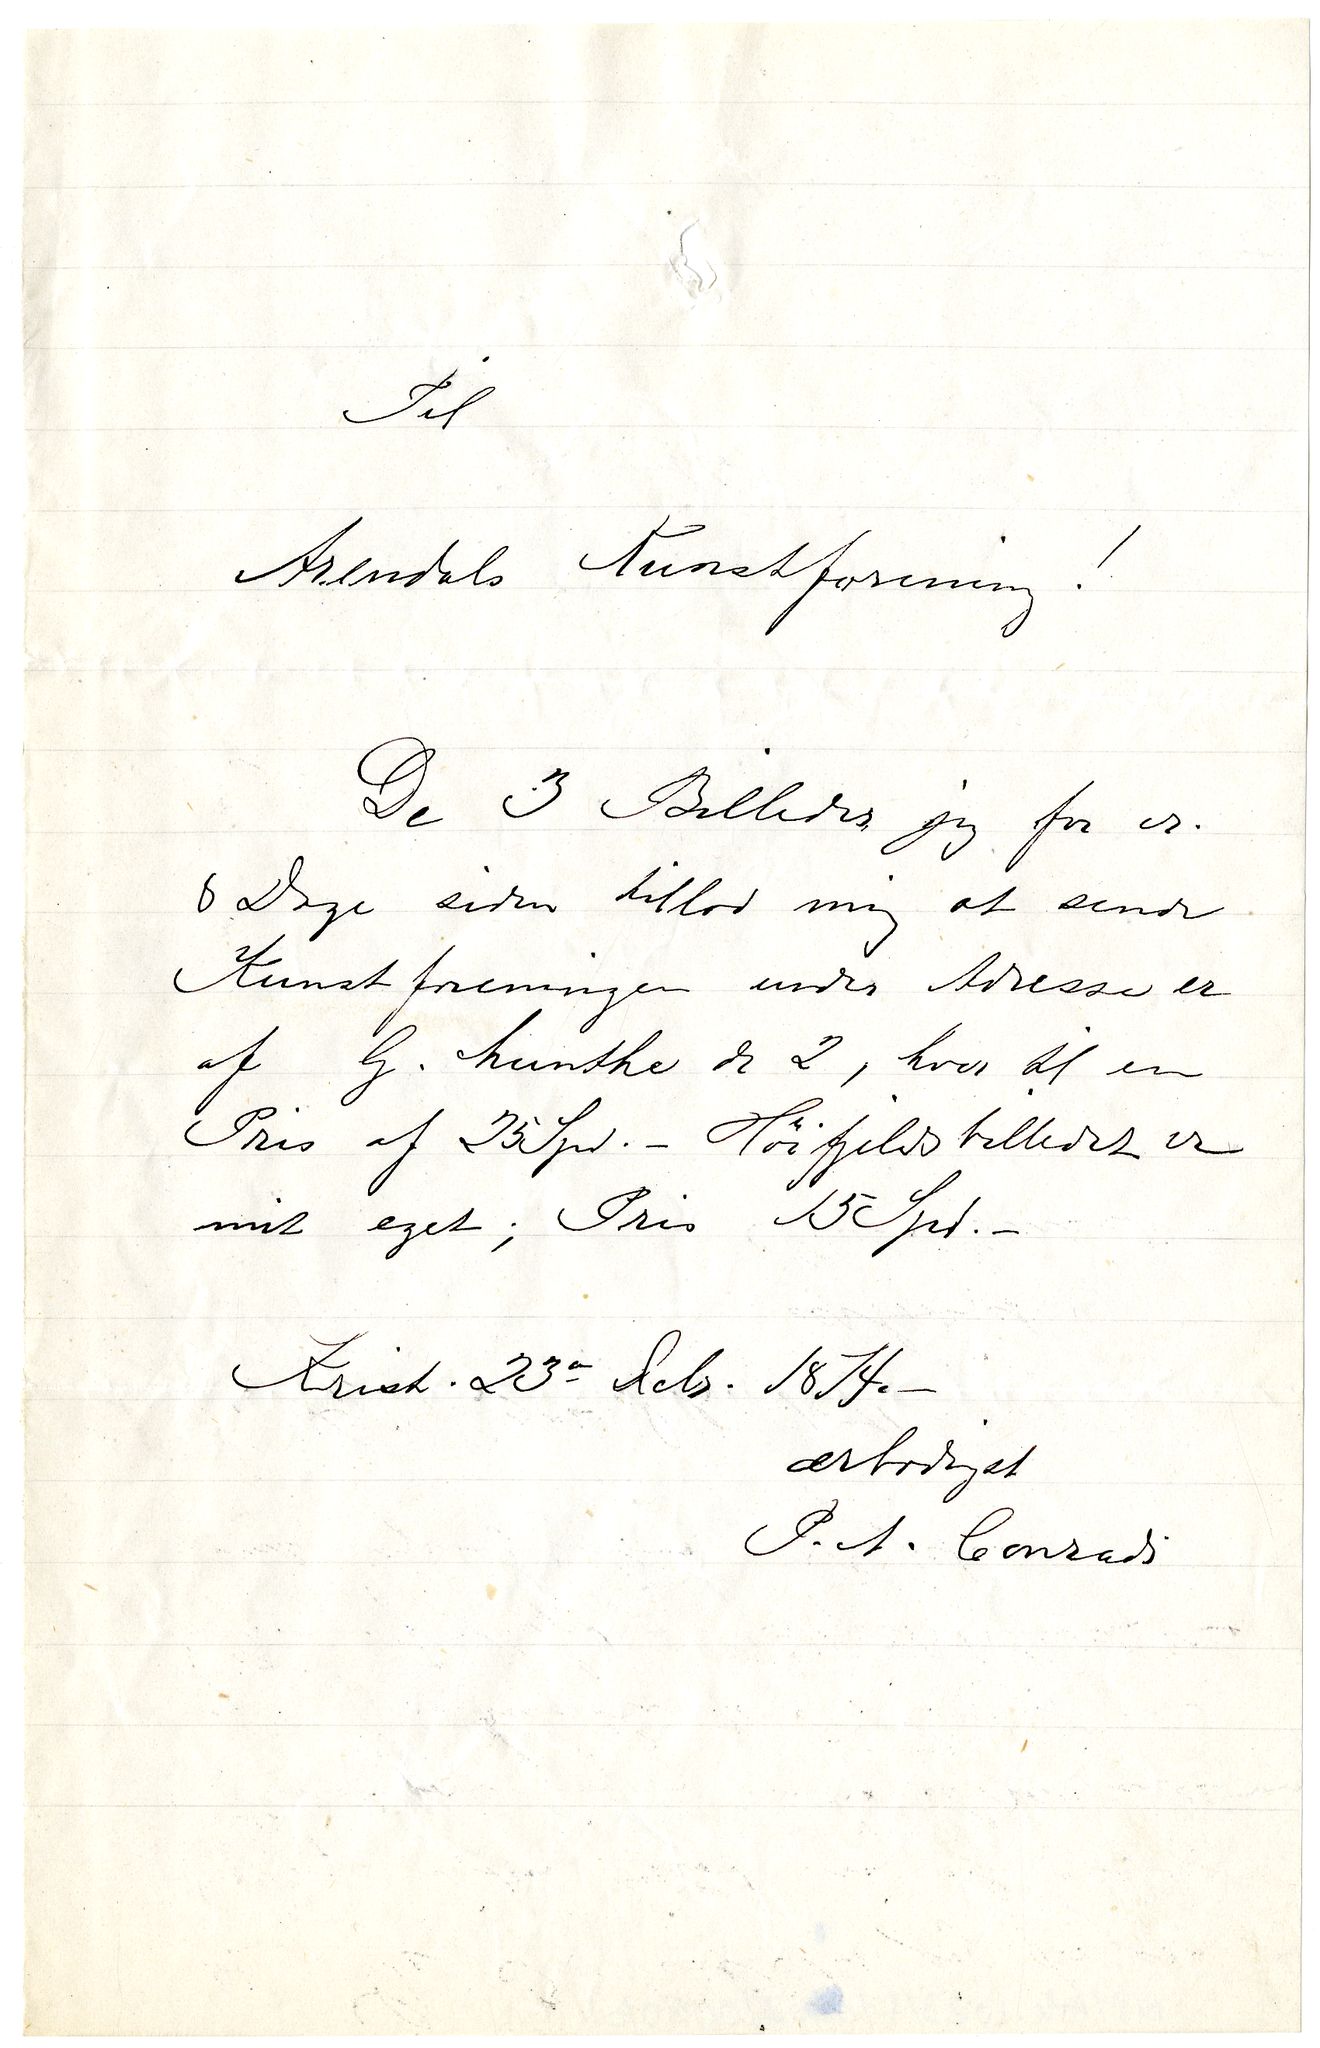 Til
Arendals Kunstforening!
De 3 Billeder, jeg for er.
8 Dage siden tillod mig at sende
Kunstforeningen under Adresse er
af G. Munthe de 2, hver til en
Pris af 25 Spd. – Höifjeldsbilledet er
mit eget; Pris 15 Spd. –
Krist. 23de 1874. –
ærbodigst
P. A. Conradi